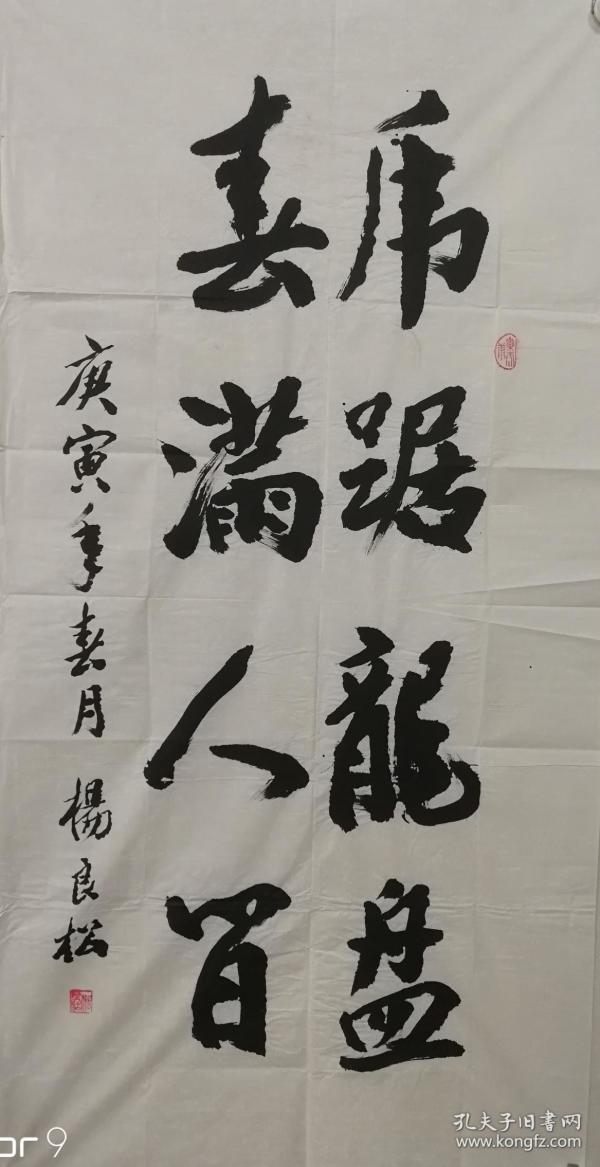 虎踞龍盤
春滿人間
庚寅年春月 楊良松
or 9
孔夫子旧書网
www.kongfz.com